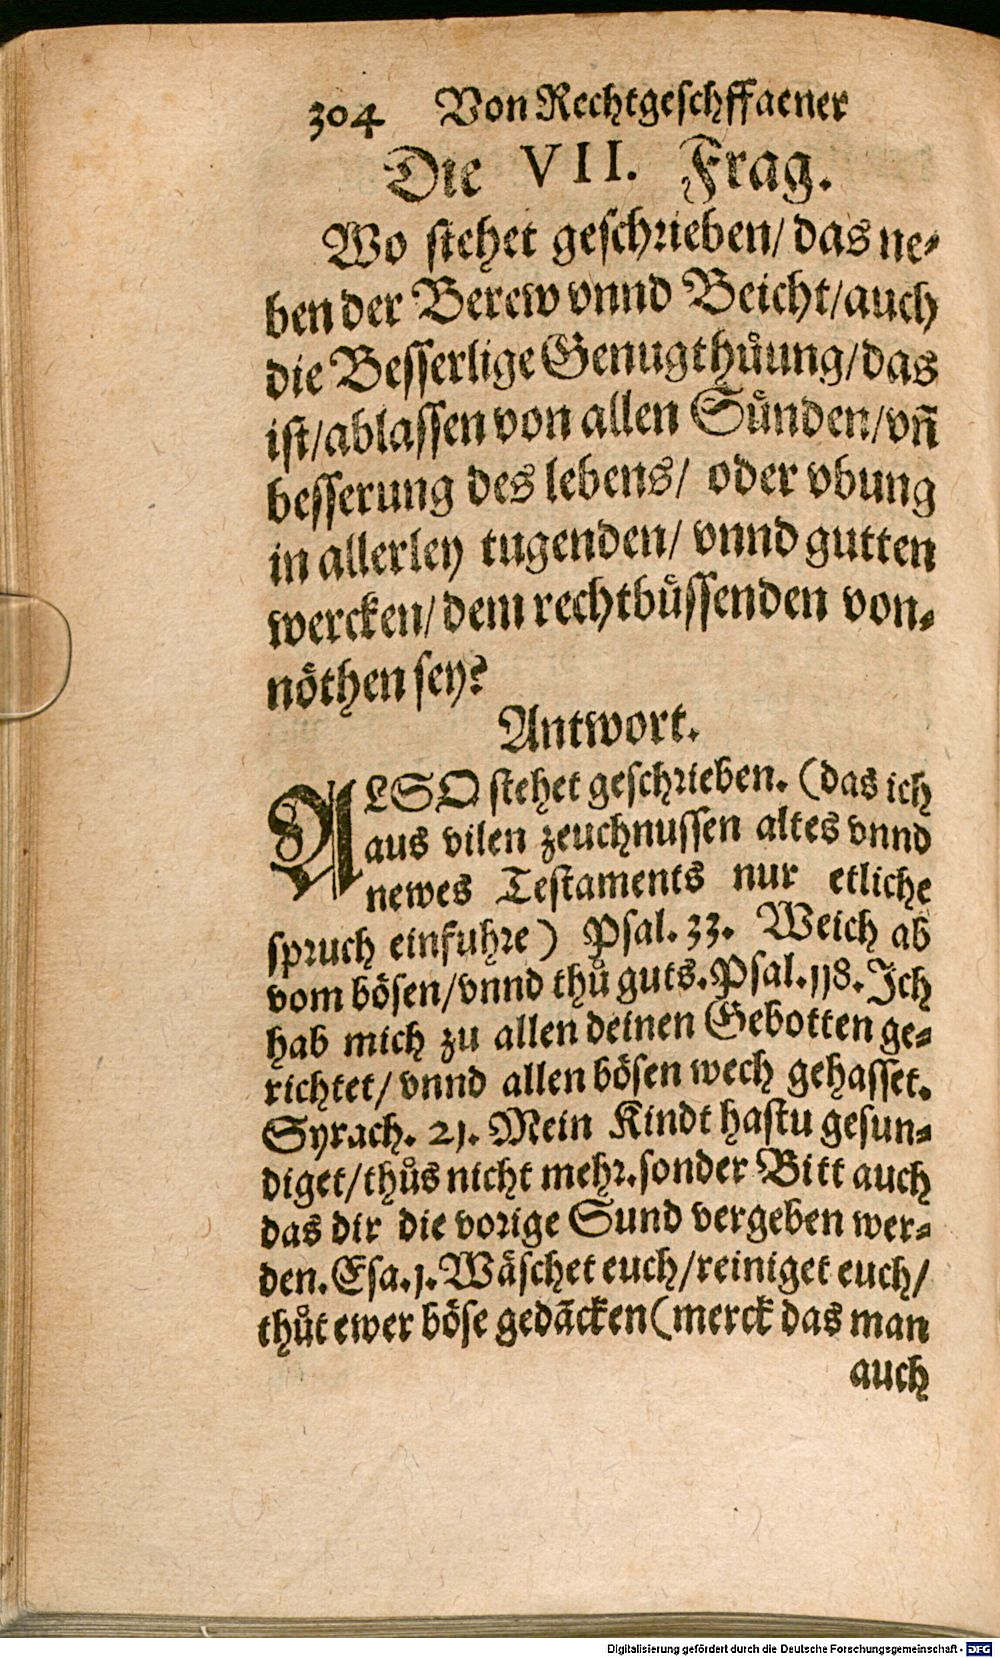 304 Von Rechtgeschffaener
Die VII. Frag.
Wo stehet geschrieben/ das ne-
ben der Berew vnnd Beicht/ auch
die Besserlige Genugthůung/ das
ist/ ablassen von allen Sůnden/ vn̄
besserung des lebens/ oder vbung
in allerley tugenden/ vnnd gutten
wercken/ dem rechtbůssenden von-
nöthen sey?
Antwort.
ALSO stehet geschrieben. (das ich
aus vilen zeuchnussen altes vnnd
newes Testaments nur etliche
spruch einfuhre) Psal. 33. Weich ab
vom bösen/ vnnd thů guts. Psal. 118. Ich
hab mich zu allen deinen Gebotten ge-
richtet/ vnnd allen bösen wech gehasset.
Syrach. 21. Mein Kindt hastu gesun-
diget/ thůs nicht mehr. sonder Bitt auch
das dir die vorige Sund vergeben wer-
den. Esa. 1. Wäschet euch/ reiniget euch/
thůt ewer böse gedācken (merck das man
auch
Digitalisierung gefördert durch die Deutsche Forschungsgemeinschaft - DFG